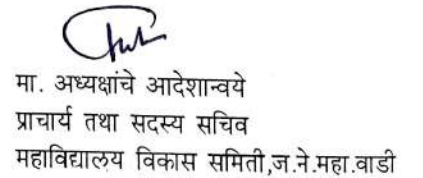 मा. अध्यक्षांचे आदेशान्वये
प्राचार्य तथा सदस्य सचिव
महाविद्यालय विकास समिती,ज.ने.महा.वाडी